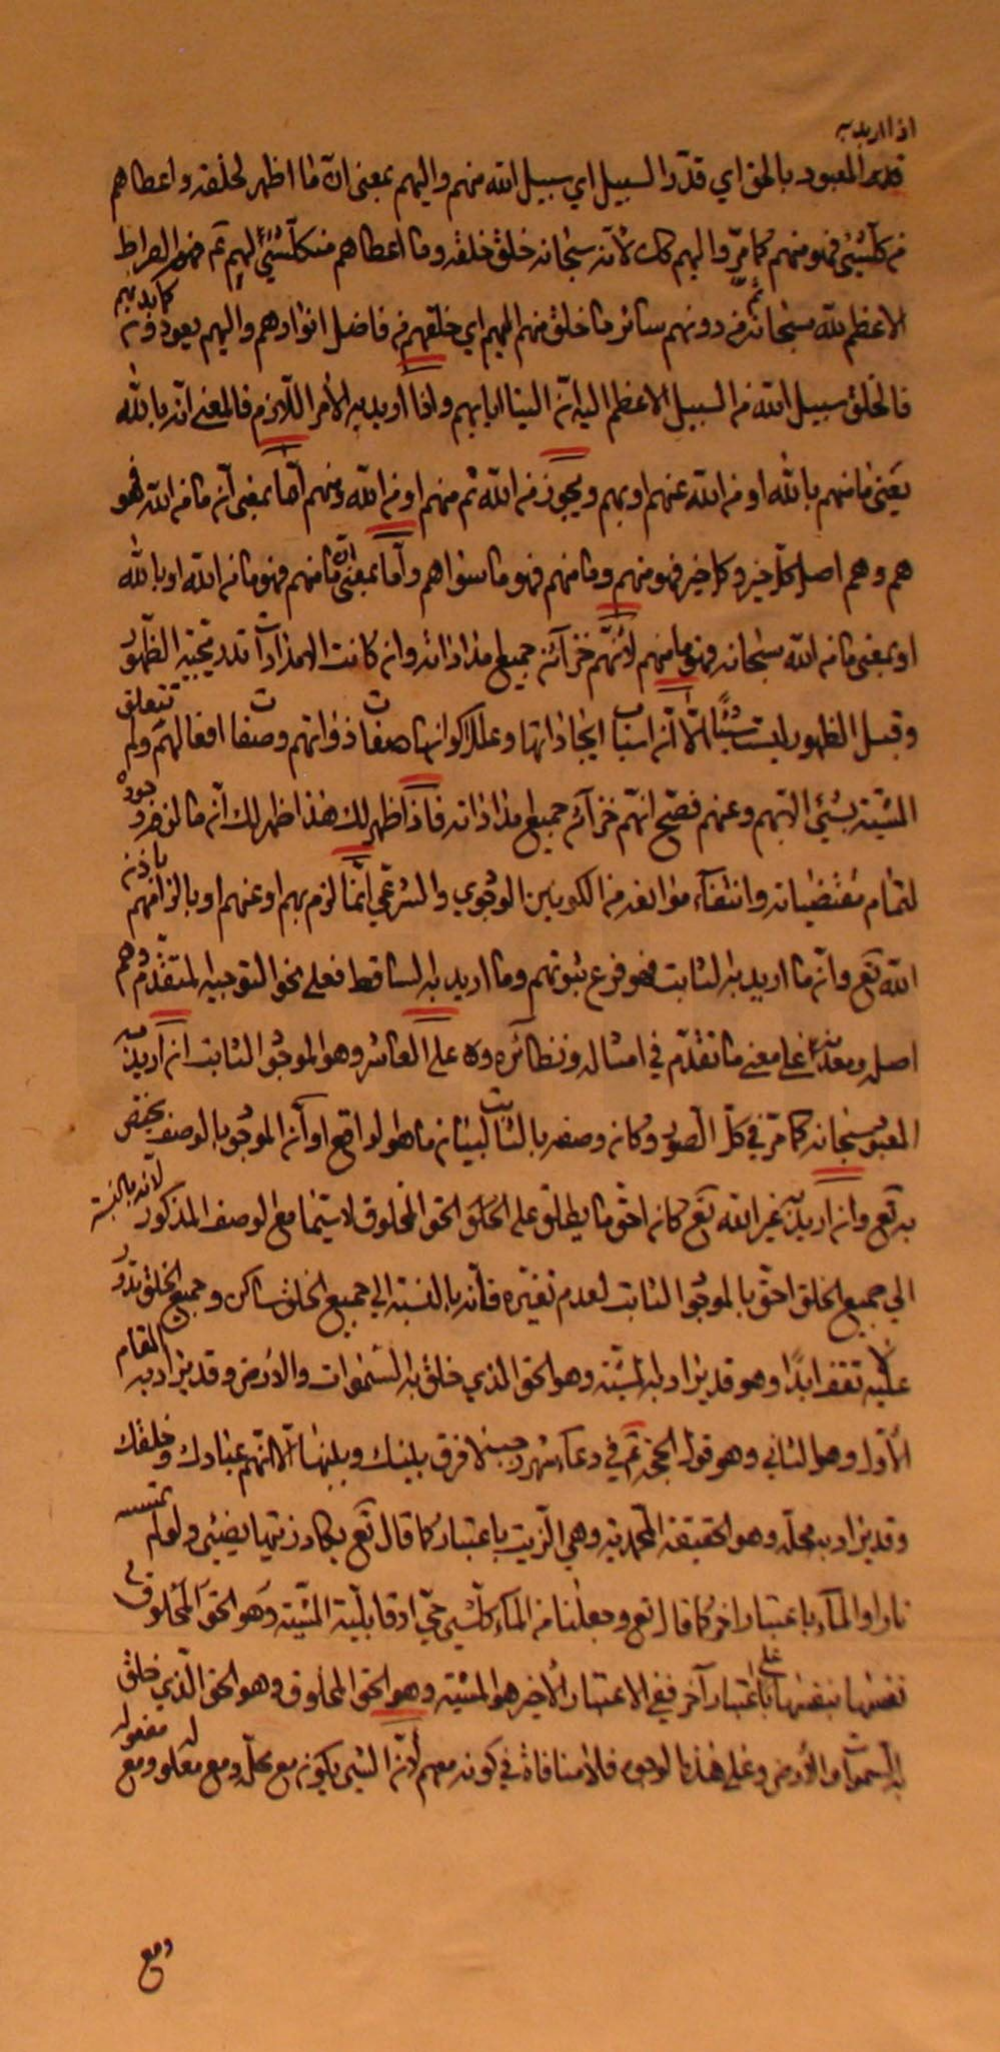 اذا اريد به
قدير المعبود بالحق اي قدّر السبيل اي سبيل الله منهم واليهم بمعنى ان ما اظهر لخلقه واعطاهم
من كلّ شيئ فهو منهم كما مرّ واليهم كك لانه سبحانه خلق خلقه وما اعطاهم من كل شيئ لهم ثم فهم الصراط
الاعظم لله سبحانه ثم من دونهم سائر ما خلق منهم اليهم اي خلقهم من فاضل انوارهم واليهم يعودون كما بدئهم
فالخلق سبيل الله من السبيل الاعظم اليه ان الينا ايابهم واذا اريد به الأمر اللّازم فالمعنى انه بالله
يعنى ما منهم بالله او من الله عنهم او بهم ويجوز من الله ثم منهم او من الله ومنهم امّا بمعنى أن ما من الله فهو
هم وهم اصل كلّ خير وكل خير فهو منهم وما منهم فهو ما سواهم وأما بمعنى ان ما منهم فهو ما من الله او بالله
او بمعنى ما من الله سبحانه فهو ما منهم لأنهم خزآئن جميع مذاذاته وان كانت الامذاذآت قد يجبه الظّهور
وقبل الظهور ليست شيئا الّا انه اسباب ايجاذاتها وعلل اكوانها صفات ذواتهم وصفات افعالهم ولم تتعلق
المشيّة بشيئ الا بهم وعنهم فصحّ انهم خزآئن جميع مذاذاته فاذا ظهر لك هذا ظهر لك أنّ ما لزم وجوده
لتمام مقتضياته وانتفآء موانعه من الكونين الوجودي والشرعي انّما لزم بهم او عنهم او بالزامهم باذن
الله تع وانّ ما اريد به الثابت فهو فرع ثبوتهم وما اريد به الساقط فعلى نحو التوجيه المتقدّم وهم
اصله ومعدنه على معنى ما تقدّم في امثاله ونظائره وه على العاشر وهو الموجود الثابت ان اريد به
المعبود سبحانه كما مرّ في كلّ الصور وكان وصفه بالثابت لبيان ما هو لواقع او أنّ الموجود بالوصف يختصّ
به تع وان اريد به غير الله تع كان احق ما يطلق على الخلق الحق المخلوق لا سيّما مع الوصف المذكور لأنه بالنسبة
الى جميع الخلق احق بالموجود الثابت لعدم تغيّره فأنّه بالنسبة الى جميع الخلق ساكن وجميع الخلق تدور
عليه لا تقف ابدًا وهو قد يراد به المشيّة وهو الحق الذي خلق به السّموات والأرض وقد يراد به المقام
الأوّل وهو الثاني وهو قول الحجّة ع في دعآء شهر رجب لا فرق بينك وبينها الّا انهم عبادك وخلقك
وقد يراد به محلّه وهو الحقيقة المحمدية وهي الزّيت باعتبار كما قال تع يكاد زيتها يضيئ ولو لم تمسسه
نار او المآء باعتبار اخر كما قال تع وجعلنا من المآء كلّ شيئ حيّ او قابليّة المشيّة وهو الحق المخلوق في
نفسها بنفسها على باعتبار آخر ففي الاعتبار الأخير هو المشيّة وهو الحق المخلوق وهو الحق الّذي خلق
به السّموات والأرض وعلى هذه الوجوه فلا منافاة في كونه معهم لأنّ الشيئ يكون مع محلّه ومع معلوله ومع مفعوله
ومع